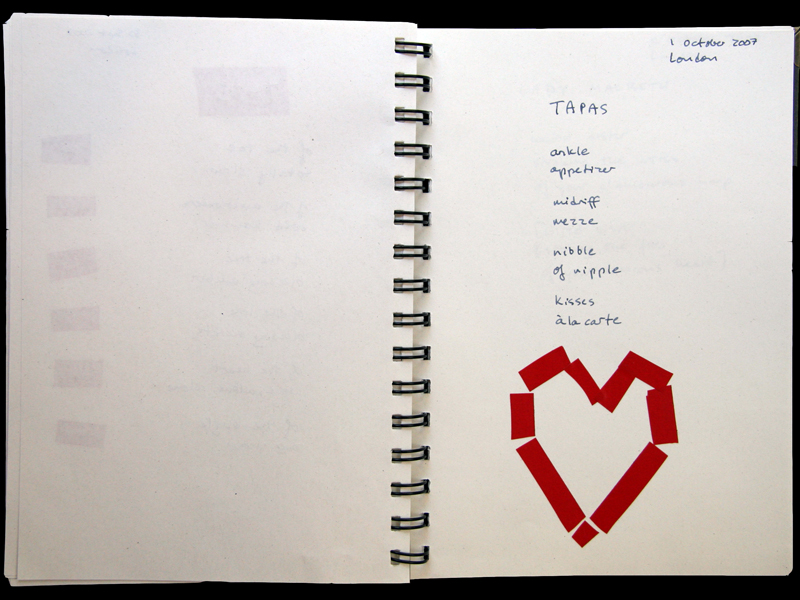 1 October 2007
London
TAPAS
ankle
appetizer
midriff
mezze
nibble
of nipple
kisses
à la carte